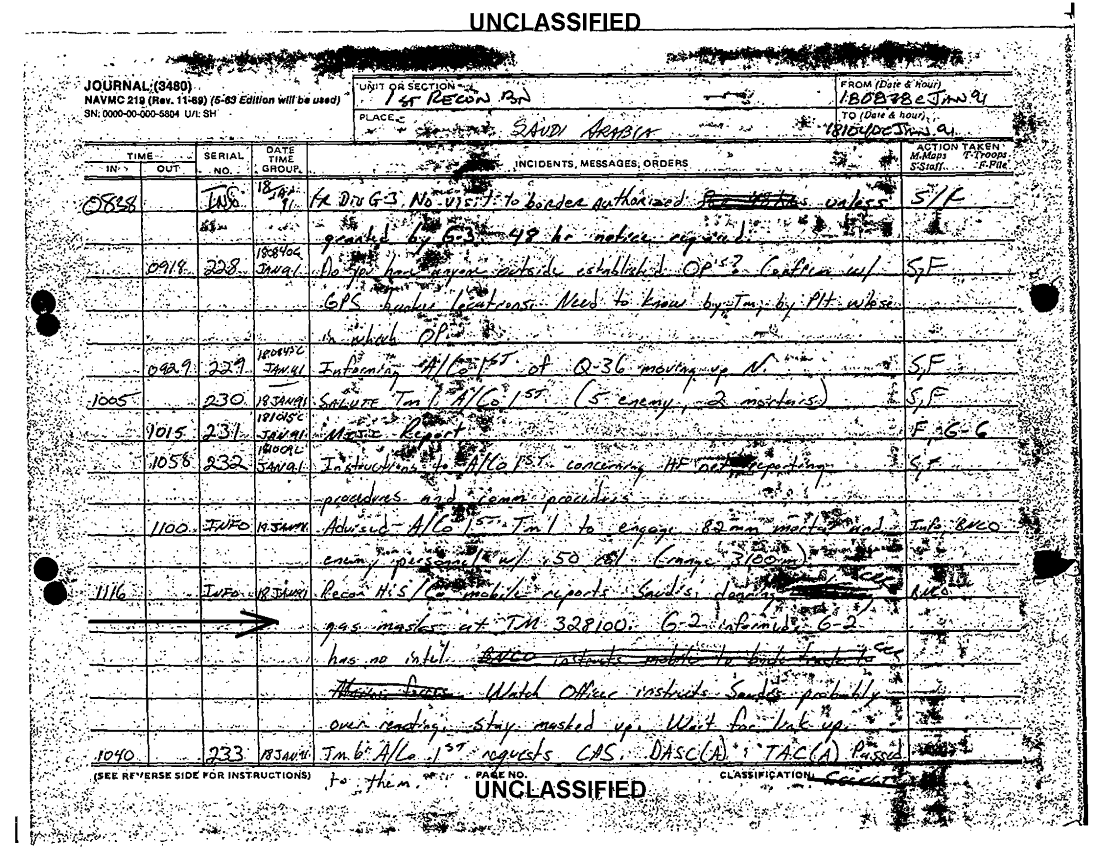 UNCLASSIFIED
JOURNAL (3480)
NAVMC 219 (Rev. 11-69) (5-63 Edition will be used)
SN: 0000-00-000-5804 U/I: SH
UNIT OR SECTION
1ST RECON BN
PLACE
SAUDI ARABIA
FROM (Date & hour)
180838C JAN 91
TO (Date & hour)
181040C JAN 91
TIME IN OUT SERIAL NO. DATE TIME GROUP INCIDENTS, MESSAGES, ORDERS ACTION TAKEN M-Maps T-Troops S-Staff F-File
0838 18 JAN 91 Fr Div G-3 No visit to border authorized unless S/F
granted by G-3 48 hr notice required.
0918 228 JAN 91 Do you have anyone outside established OP's? Confirm w/ S,F
GPS bunker locations. Need to know by Tm, by Plt whose
in which OP.
0929 229 JAN 91 Informing A/Co 1ST of Q-36 moving up N. S,F
1005 230 18 JAN 91 SALUTE Tm 1 A/Co 1ST (5 enemy, 2 mortars) S,F
1015 231 181015C JAN 91 MIJI Report F, G-6
1058 232 JAN 91 Instructions to A/Co 1ST concerning HF net reporting S,F
procedures and comm procedures
1100 INFO 18 JAN 91 Advised A/Co 1ST Tm 1 to engage 82mm mortar and Info BNCO
enemy personnel w/ .50 cal (range 3100m)
1116 INFO 18 JAN 91 Recon H&S/Co mobile reports Saudis
gas masks at TM 328100. G-2 informed. G-2
has no intel BNCO instructs mobile to
Watch Officer instructs Saudis probably
over reacting. Stay masked up. Wait for link up.
1040 233 18 JAN 91 Tm 6 A/Co 1ST requests CAS. DASC(A) TAC(A) Passed
to them.
(SEE REVERSE SIDE FOR INSTRUCTIONS) PAGE NO. CLASSIFICATION
UNCLASSIFIED